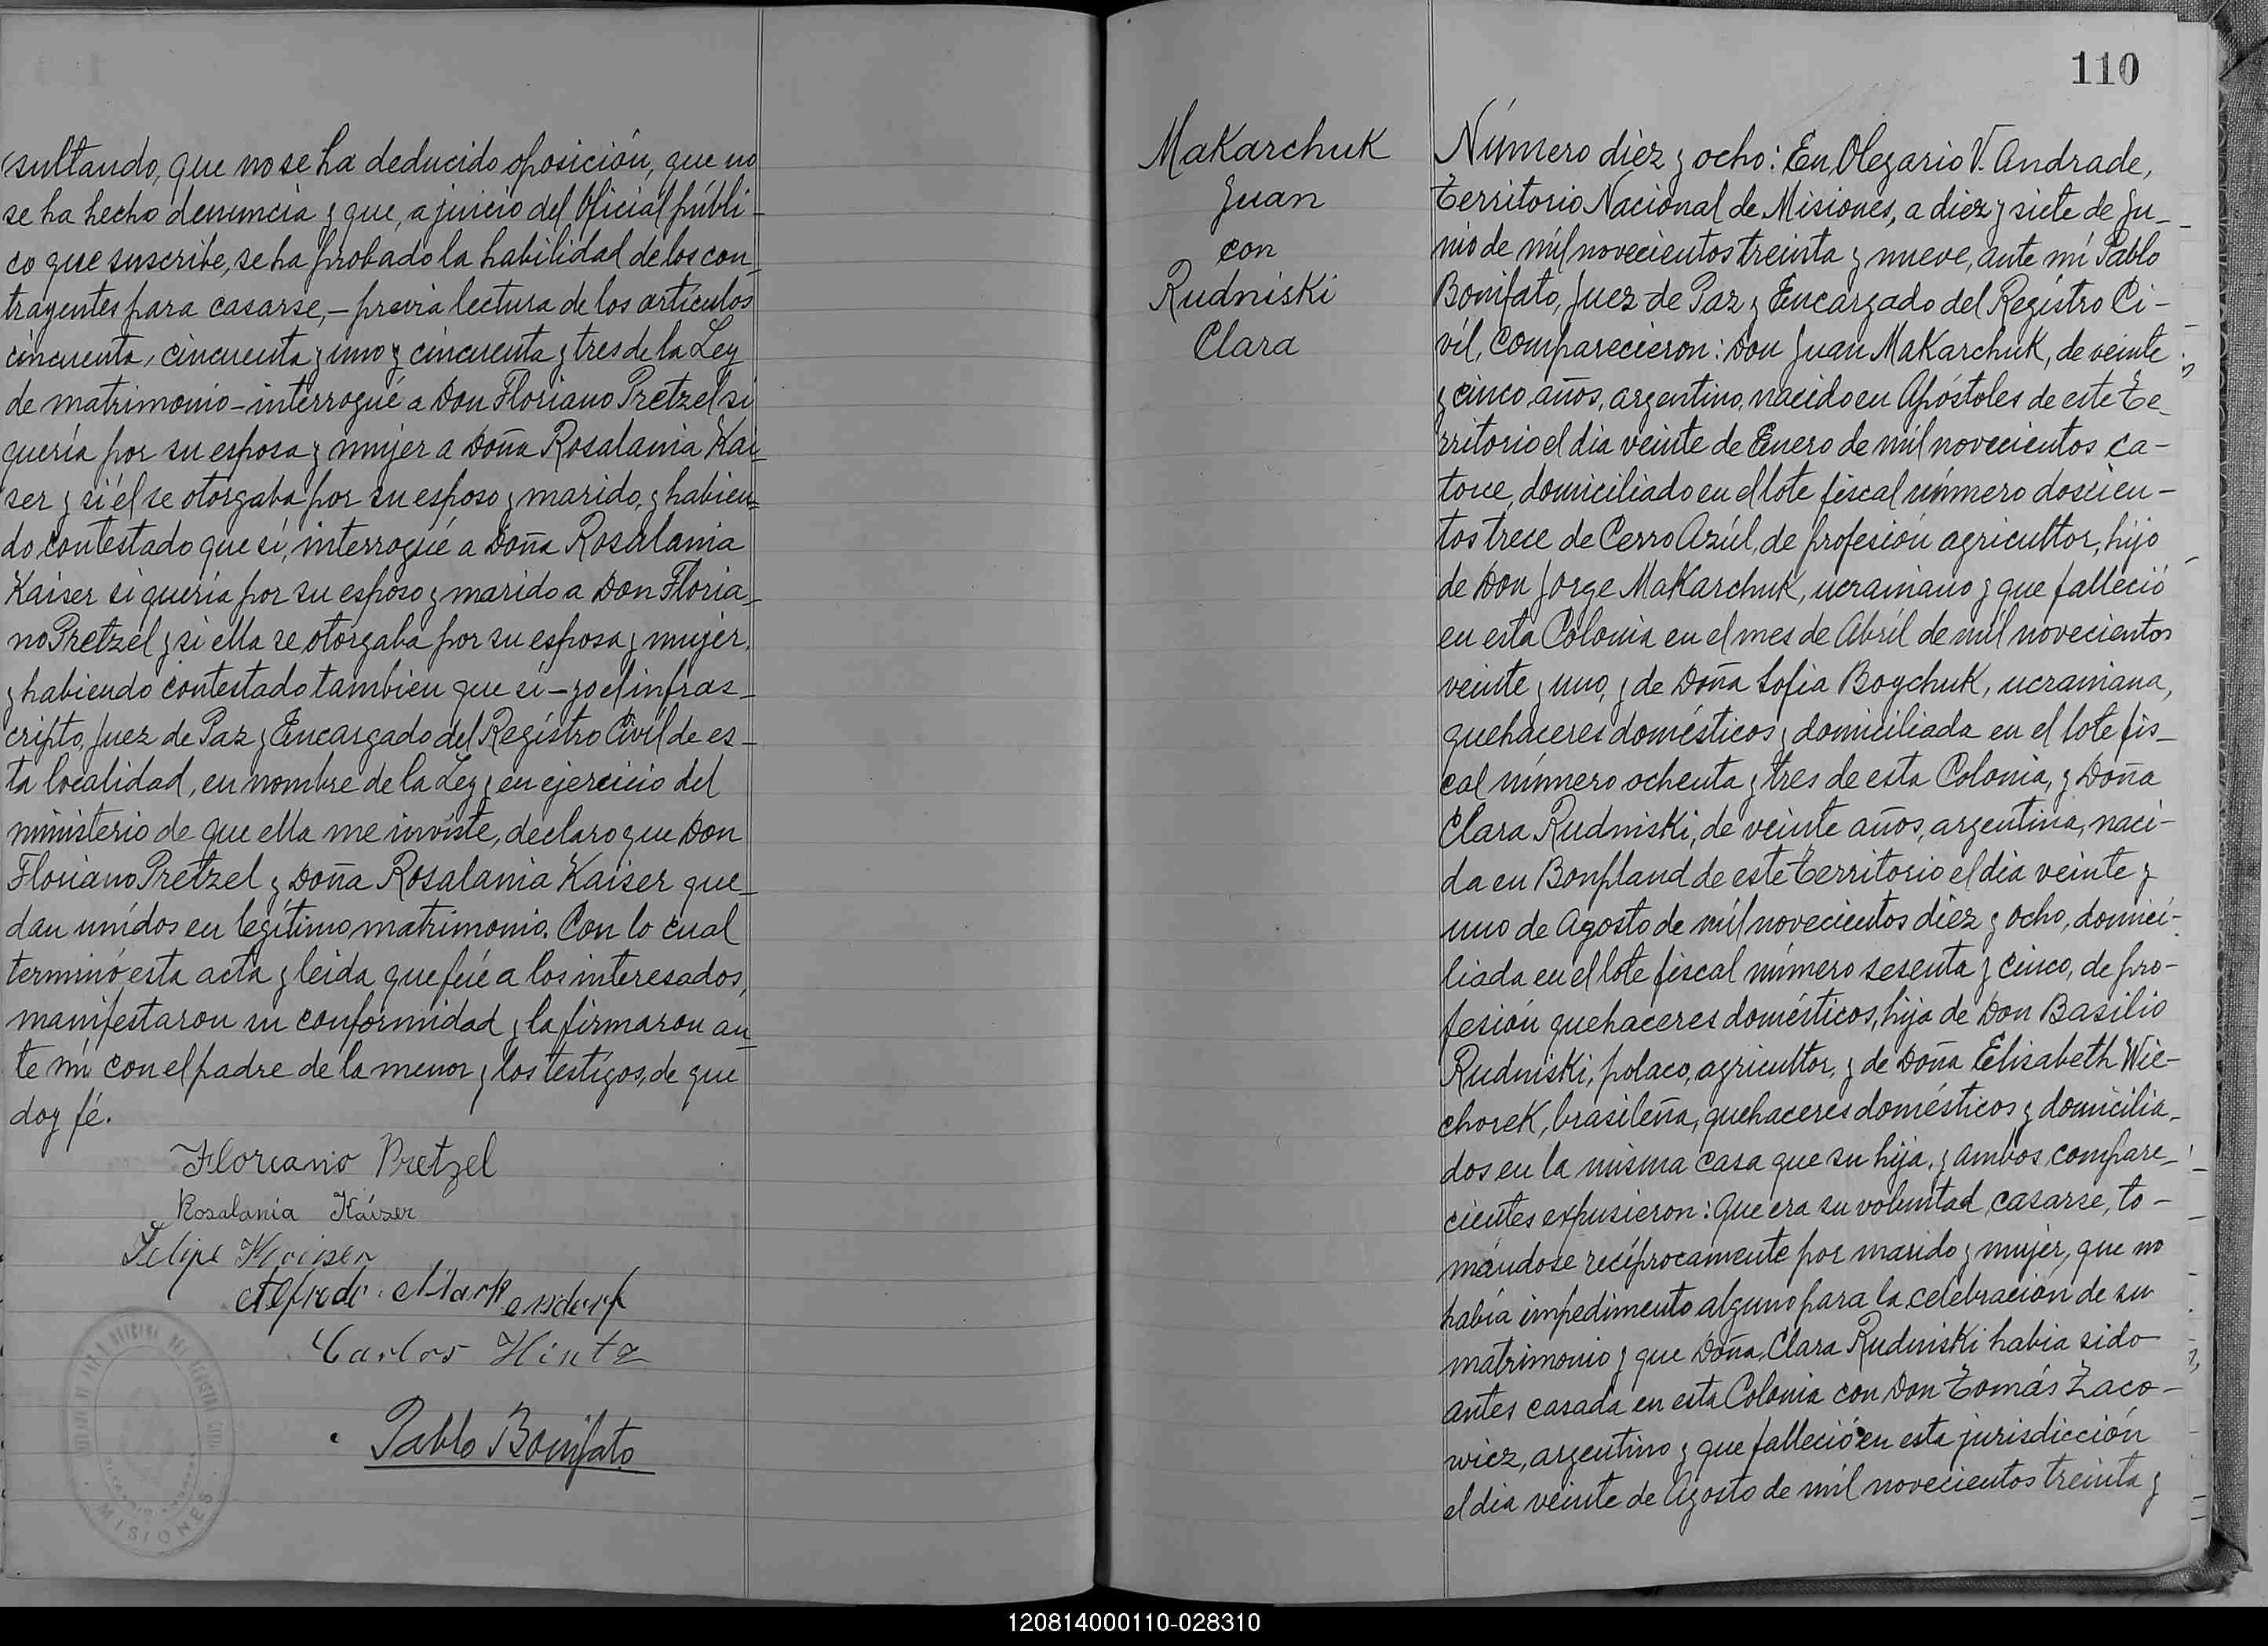 sultando, que no se ha deducido oposición, que no
se ha hecho denuncia y que, a juicio del Oficial públi-
co que suscribe, se ha probado la habilidad de los con-
trayentes para casarse,- previa lectura de los artículos
cincuenta, cincuenta y uno y cincuenta y tres de la Ley
de matrimonio - interrogué a Don Floriano Pretzel si
quería por su esposa y mujer a Doña Rosalania Kai-
ser y si él se otorgaba por su esposo y marido, y habien-
do contestado que sí, interrogué a Doña Rosalania
Kaiser si quería por su esposo y marido a Don Floria-
no Pretzel y si ella se otorgaba por su esposa y mujer,
y habiendo contestado tambien que sí - yo el infras-
cripto, Juez de Paz y Encargado del Registro Civil de es-
ta localidad, en nombre de la Ley y en ejercicio del
ministerio de que ella me inviste, declaro que Don
Floriano Pretzel y Doña Rosalania Kaiser que-
dan unidos en legítimo matrimonio. Con lo cual
terminó esta acta y leida que fué a los interesados,
manifestaron su conformidad y la firmaron an-
te mí con el padre de la menor y los testigos, de que
doy fé.
Floreano Pretzel
Rosalania Káiser
Felipe Kaiser
Alfredo Markendorf
Carlos Hintz
Pablo Bonifato
MISIONES
110
Makarchuk
Juan
con
Rudniski
Clara
Número diez y ocho: En Olegario V. Andrade,
Territorio Nacional de Misiones, a diez y siete de Ju-
nio de mil novecientos treinta y nueve, ante mí Pablo
Bonifato, Juez de Paz y Encargado del Registro Ci-
vil, comparecieron: Don Juan Makarchuk, de veinte
y cinco años, argentino, nacido en Apóstoles de este Te-
rritorio el dia veinte de Enero de mil novecientos ca-
torce, domiciliado en el lote fiscal número doscien-
tos trece de Cerro Azúl, de profesión agricultor, hijo
de Don Jorge Makarchuk, ucraniano y que falleció
en esta Colonia en el mes de Abril de mil novecientos
veinte y uno, y de Doña Sofia Boychuk, ucraniana,
quehaceres domésticos y domiciliada en el lote fis-
cal número ochenta y tres de esta Colonia, y Doña
Clara Rudniski, de veinte años, argentina, naci-
da en Bonpland de este Territorio el dia veinte y
uno de Agosto de mil novecientos diez y ocho, domici-
liada en el lote fiscal número sesenta y cinco, de pro-
fesión quehaceres domésticos, hija de Don Basilio
Rudniski, polaco, agricultor, y de Doña Elisabeth Wie-
chorek, brasileña, quehaceres domésticos y domicilia-
dos en la misma casa que su hija, y ambos compare-
cientes expusieron: Que era su voluntad casarse, to-
mándose recíprocamente por marido y mujer, que no
había impedimento alguno para la celebración de su
matrimonio y que Doña Clara Rudniski habia sido
antes casada en esta Colonia con Don Tomás Zaco-
wicz, argentino y que falleció en esta jurisdicción
el dia veinte de Agosto de mil novecientos treinta y
120814000110-028310